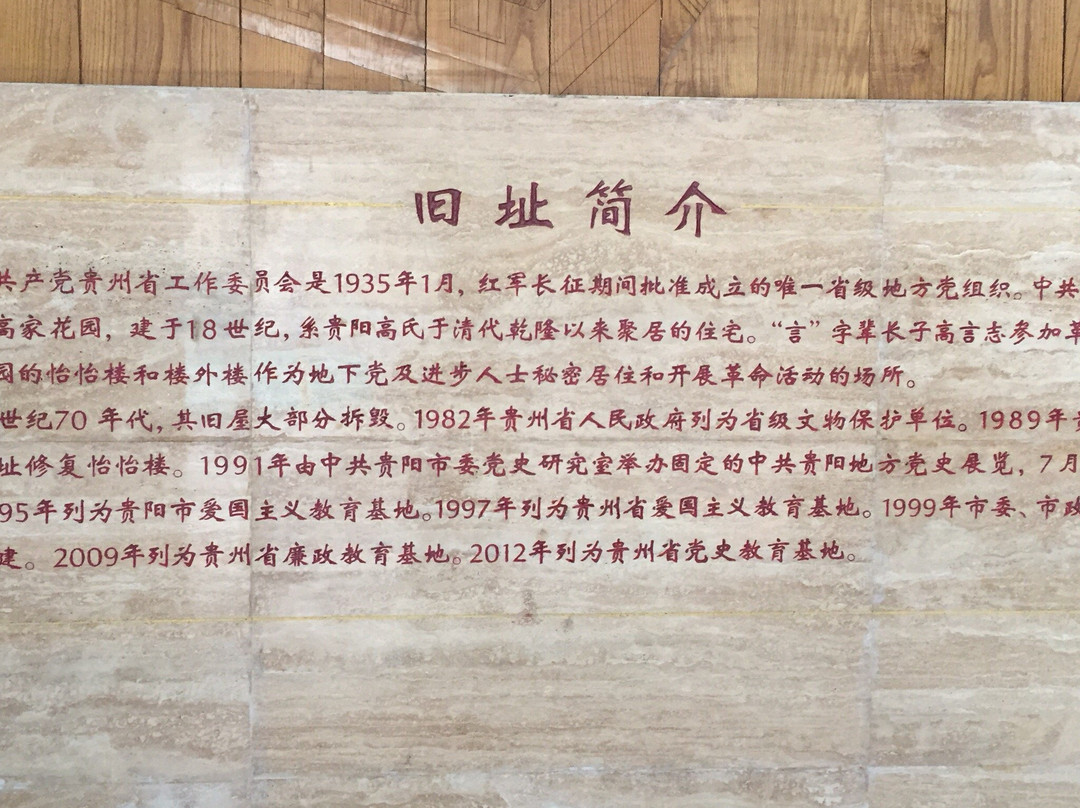 旧址简介
共产党贵州省工作委员会是1935年1月，红军长征期间批准成立的唯一省级地方党组织。中共
高家花园，建于18世纪，系贵阳高氏于清代乾隆以来聚居的住宅。“言”字辈长子高言志参加革
园的怡怡楼和楼外楼作为地下党及进步人士秘密居住和开展革命活动的场所。
世纪70年代，其旧屋大部分拆毁。1982年贵州省人民政府列为省级文物保护单位。1989年
址修复怡怡楼。1991年由中共贵阳市委党史研究室举办固定的中共贵阳地方党史展览，7月
95年列为贵阳市爱国主义教育基地。1997年列为贵州省爱国主义教育基地。1999年市委、市政
建。2009年列为贵州省廉政教育基地。2012年列为贵州省党史教育基地。